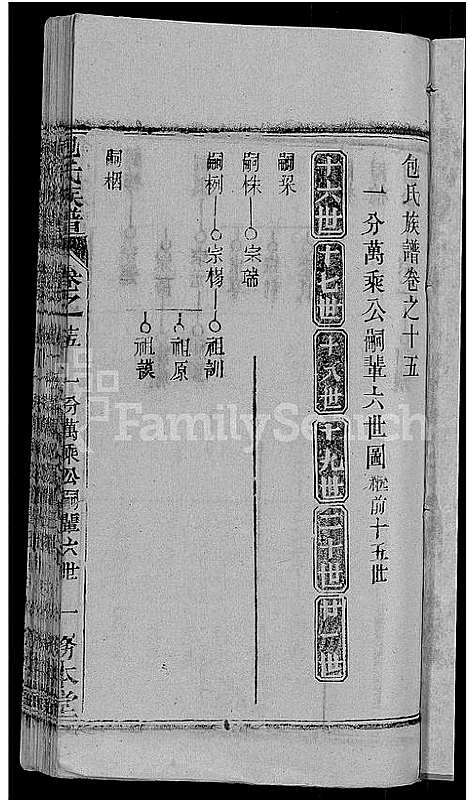 包氏族譜卷之十五
一分萬乘公嗣輩六世圖 前十五世
十六世 十七世 十八世 十九世 二十世 廿一世
嗣栞
嗣株 宗瑞
嗣栵 宗楊 祖訓
祖原
祖謨
嗣栶
包氏族譜 卷之十五 一分萬乘公嗣輩六世 一 務本堂
FamilySearch